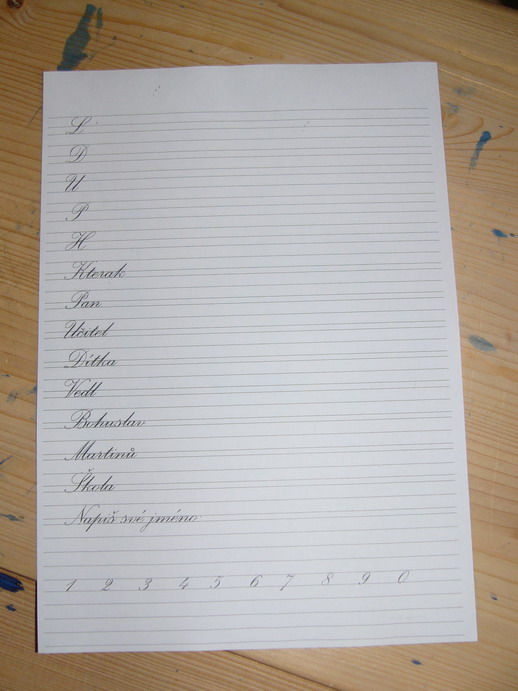 L
D
U
P
H
Kterak
Pan
Učitel
Dítka
Vedl
Bohuslav
Martinů
Škola
Napiš své jméno
1 2 3 4 5 6 7 8 9 0